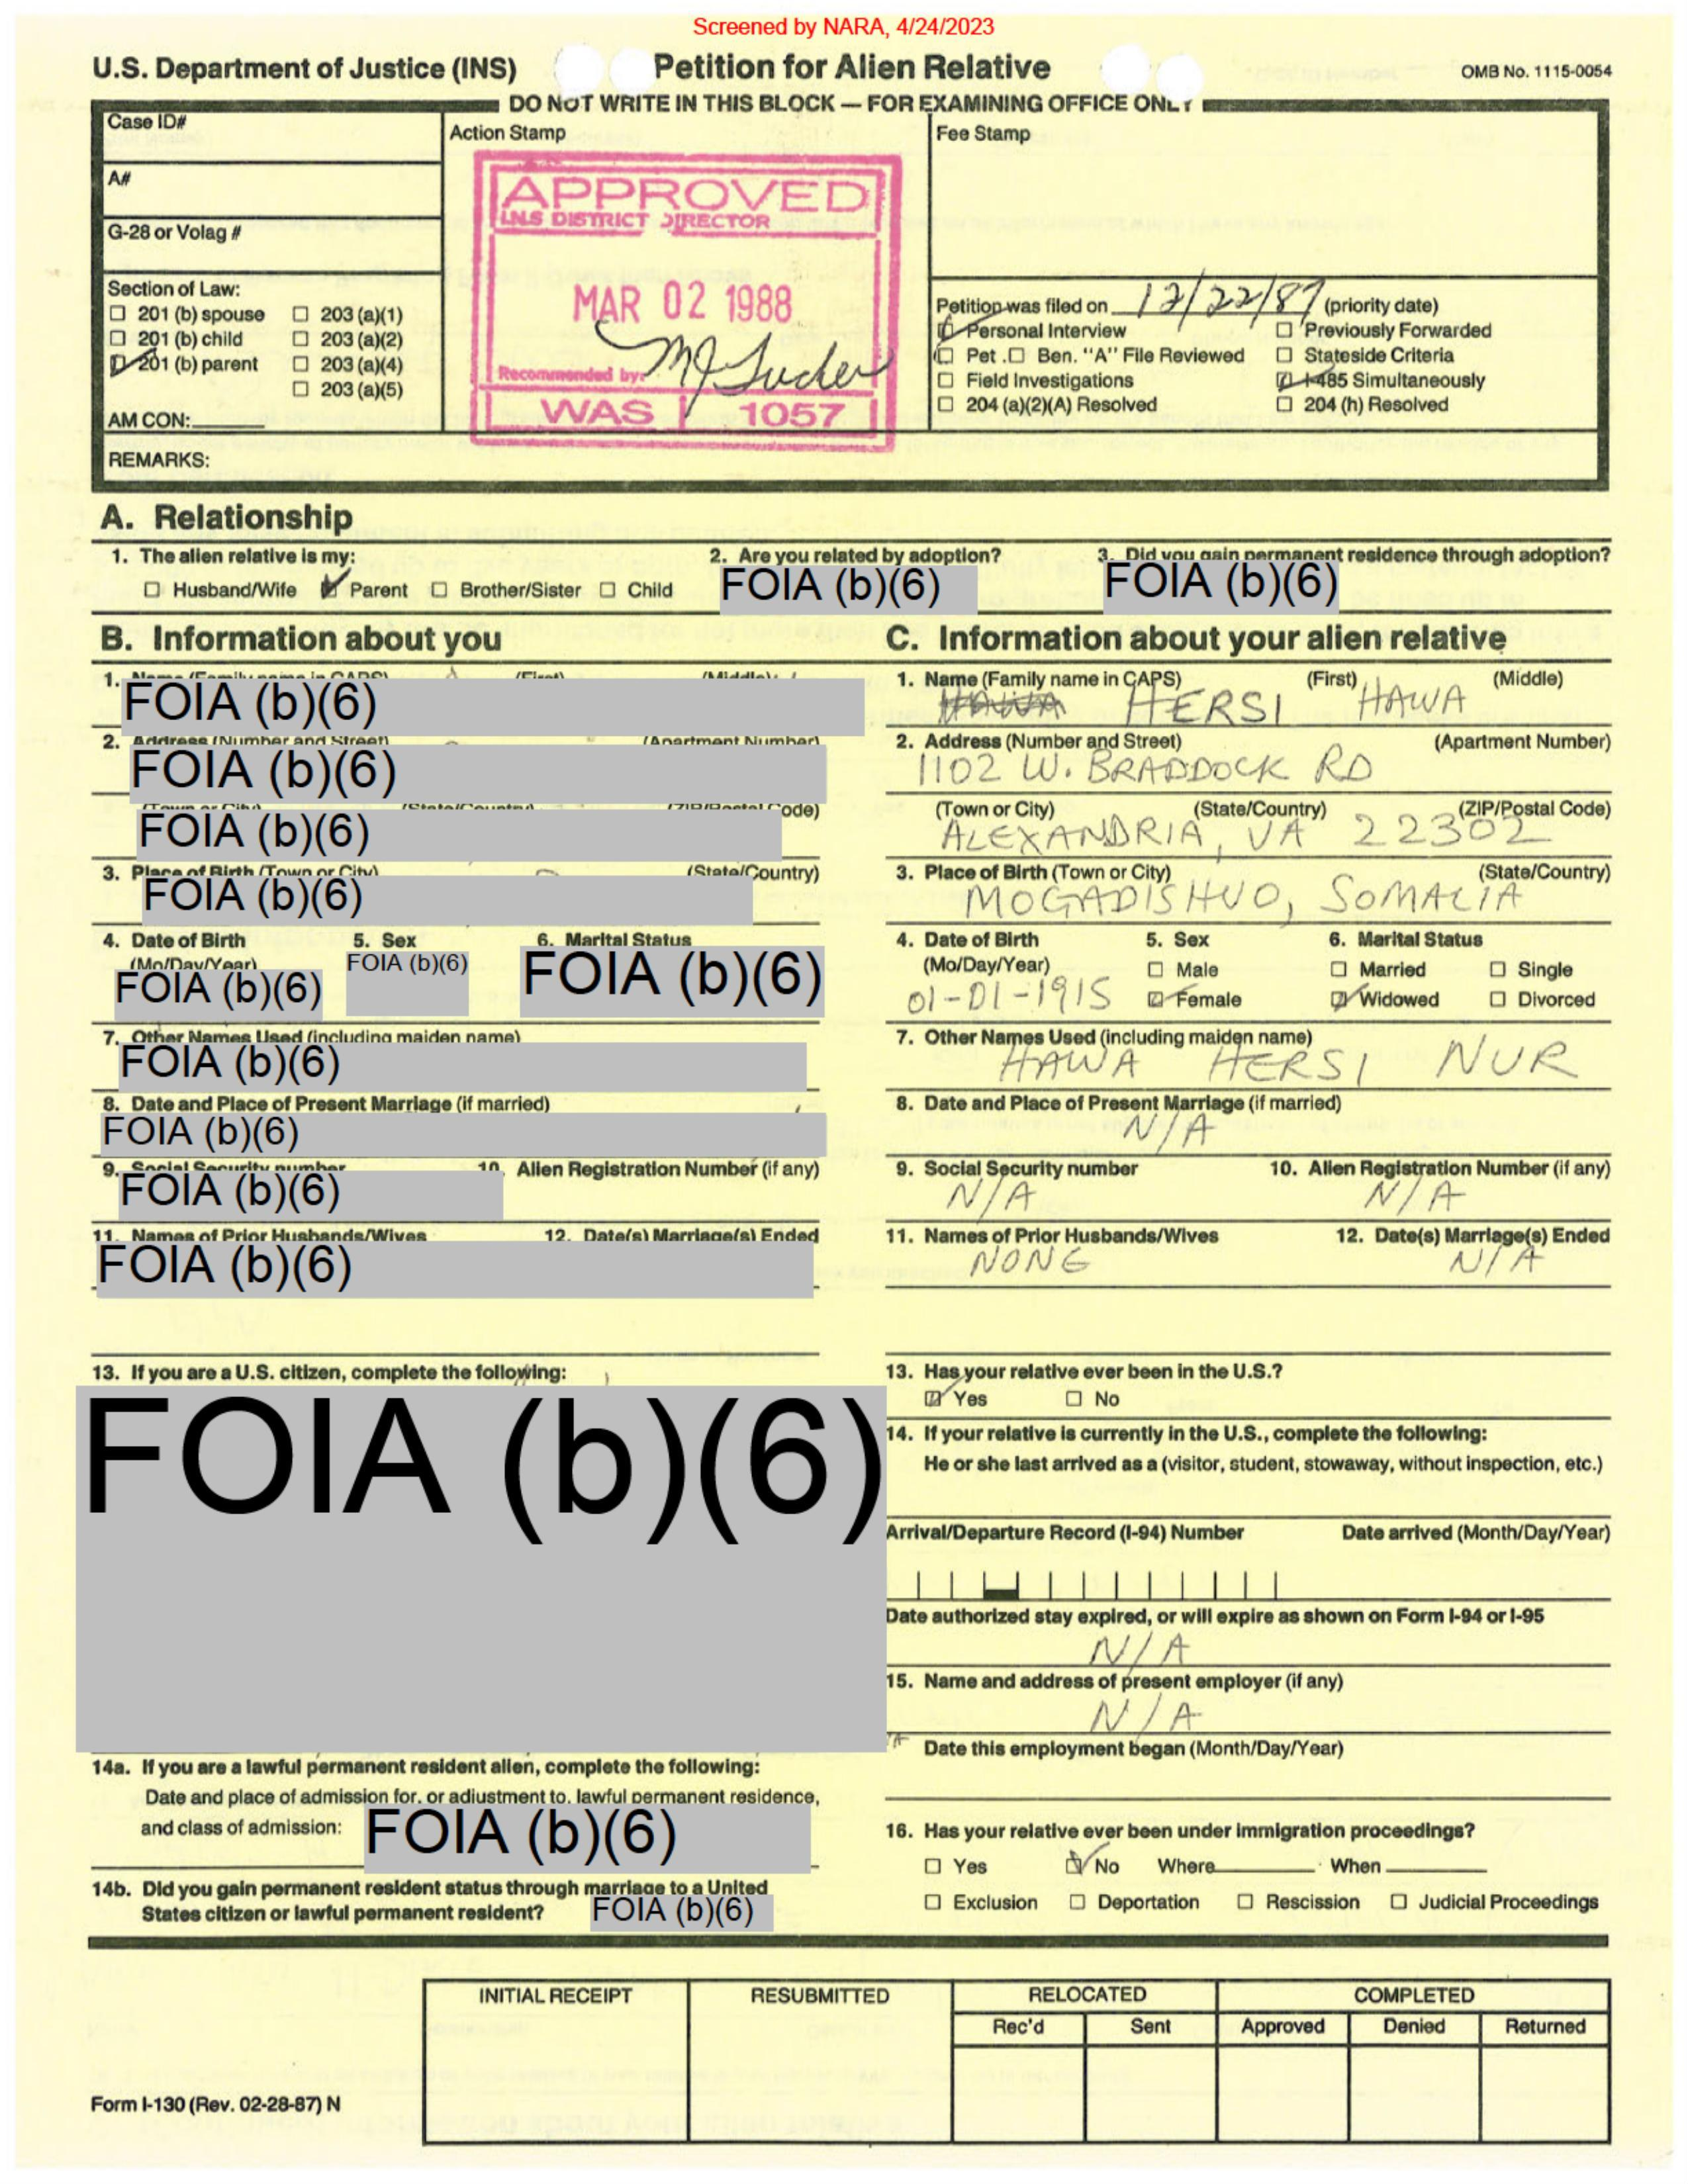 Screened by NARA, 4/24/2023
U.S. Department of Justice (INS) Petition for Alien Relative OMB No. 1115-0054
DO NOT WRITE IN THIS BLOCK — FOR EXAMINING OFFICE ONLY
Case ID#
Action Stamp
Fee Stamp
A#
G-28 or Volag #
APPROVED
I.N.S DISTRICT DIRECTOR
MAR 02 1988
Recommended by:
WAS 1057
Section of Law:
☐ 201 (b) spouse ☐ 203 (a)(1)
☐ 201 (b) child ☐ 203 (a)(2)
☑ 201 (b) parent ☐ 203 (a)(4)
☐ 203 (a)(5)
AM CON:
Petition was filed on 12/22/87 (priority date)
☑ Personal Interview ☐ Previously Forwarded
☐ Pet. ☐ Ben. "A" File Reviewed ☐ Stateside Criteria
☐ Field Investigations ☑ I-485 Simultaneously
☐ 204 (a)(2)(A) Resolved ☐ 204 (h) Resolved
REMARKS:
A. Relationship
1. The alien relative is my: 2. Are you related by adoption? 3. Did you gain permanent residence through adoption?
☐ Husband/Wife ☑ Parent ☐ Brother/Sister ☐ Child FOIA (b)(6) FOIA (b)(6)
B. Information about you
1. Name (Family name in CAPS) (First) (Middle)
FOIA (b)(6)
2. Address (Number and Street) (Apartment Number)
FOIA (b)(6)
(Town or City) (State/Country) (ZIP/Postal Code)
FOIA (b)(6)
3. Place of Birth (Town or City) (State/Country)
FOIA (b)(6)
4. Date of Birth 5. Sex 6. Marital Status
(Mo/Day/Year) FOIA (b)(6) FOIA (b)(6)
FOIA (b)(6)
7. Other Names Used (including maiden name)
FOIA (b)(6)
8. Date and Place of Present Marriage (if married)
FOIA (b)(6)
9. Social Security number 10. Alien Registration Number (if any)
FOIA (b)(6)
11. Names of Prior Husbands/Wives 12. Date(s) Marriage(s) Ended
FOIA (b)(6)
13. If you are a U.S. citizen, complete the following:
FOIA (b)(6)
14a. If you are a lawful permanent resident alien, complete the following:
Date and place of admission for, or adjustment to, lawful permanent residence,
and class of admission: FOIA (b)(6)
14b. Did you gain permanent resident status through marriage to a United
States citizen or lawful permanent resident? FOIA (b)(6)
C. Information about your alien relative
1. Name (Family name in CAPS) (First) (Middle)
HAWA HERSI HAWA
2. Address (Number and Street) (Apartment Number)
1102 W. BRADDOCK RD
(Town or City) (State/Country) (ZIP/Postal Code)
ALEXANDRIA, VA 22302
3. Place of Birth (Town or City) (State/Country)
MOGADISHUO, SOMALIA
4. Date of Birth 5. Sex 6. Marital Status
(Mo/Day/Year) ☐ Male ☐ Married ☐ Single
01-01-1915 ☑ Female ☑ Widowed ☐ Divorced
7. Other Names Used (including maiden name)
HAWA HERSI NUR
8. Date and Place of Present Marriage (if married)
N/A
9. Social Security number 10. Alien Registration Number (if any)
N/A N/A
11. Names of Prior Husbands/Wives 12. Date(s) Marriage(s) Ended
NONE N/A
13. Has your relative ever been in the U.S.?
☑ Yes ☐ No
14. If your relative is currently in the U.S., complete the following:
He or she last arrived as a (visitor, student, stowaway, without inspection, etc.)
Arrival/Departure Record (I-94) Number Date arrived (Month/Day/Year)
Date authorized stay expired, or will expire as shown on Form I-94 or I-95
N/A
15. Name and address of present employer (if any)
N/A
Date this employment began (Month/Day/Year)
16. Has your relative ever been under immigration proceedings?
☐ Yes ☑ No Where When
☐ Exclusion ☐ Deportation ☐ Rescission ☐ Judicial Proceedings
INITIAL RECEIPT RESUBMITTED RELOCATED COMPLETED
Rec'd Sent Approved Denied Returned
Form I-130 (Rev. 02-28-87) N